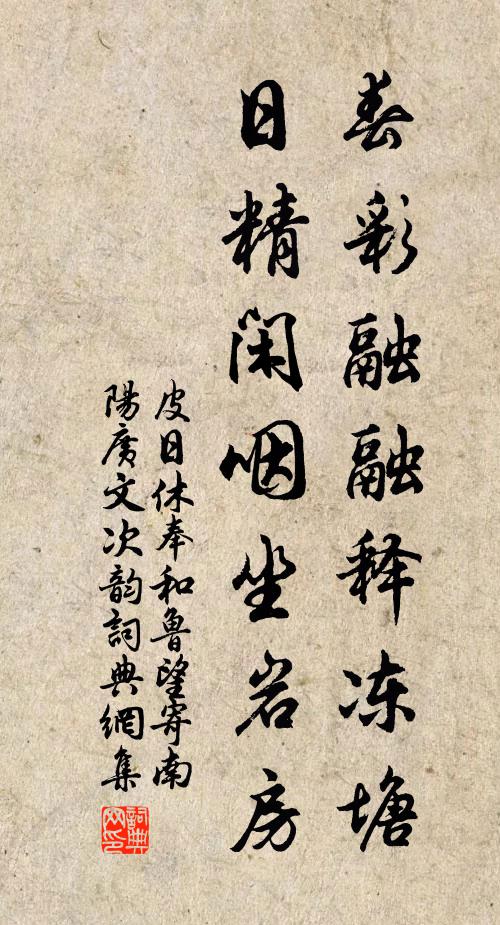 春彩融融释冻塘
日精闲咽坐岩房
皮日休奉和魯望寄南
陽廣文次韵詞典網集
詞典
网印